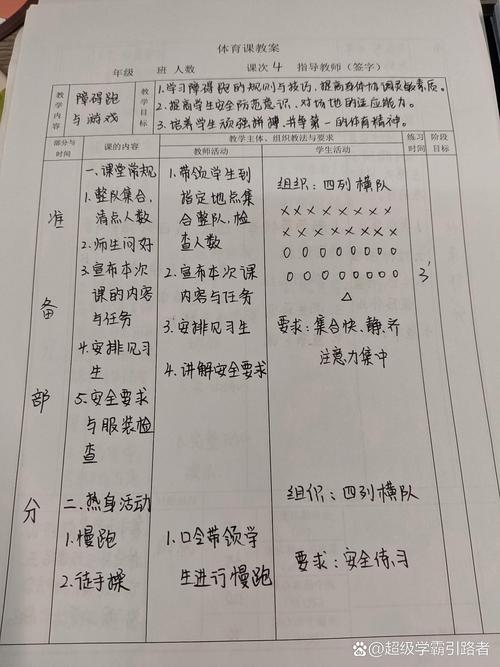 体育课教案
年级 班 人数 课次 4 指导教师（签字）
教学内容
障碍跑
与游戏
教学目标
1.学习障碍跑的规则与技巧，提高身体协调灵敏素质。
2.提高学生安全防范意识、对场地的适应能力。
3.培养学生顽强拼搏、书争第一的体育精神。
部分与时间
课的内容
教学主体、组织教法与要求
教师活动
学生活动
练习时间
阶段目标
准备部分
一.课堂常规
1.整队集合，
清点人数
2.师生问好
3.宣布本次
课的内容
与任务
4.安排见习
生
5.安全要求
与服装检
查
二.热身活动
1.慢跑
2.徒手操
1.带领学生到
指定地点集
合整队，检
查人数
2.宣布本次课
内容与任务
3.安排见习生
4.讲解安全要求
1.口令带领学
生进行慢跑
组织：四列横队
× × × × × × × ×
× × × × × × × ×
0 0 0 0 0 0 0 0
0 0 0 0 0 0 0 0
△
要求：集合快、静、齐
注意力集中
组织：四列横队
要求：安全练习
3'
@超级学霸引路者